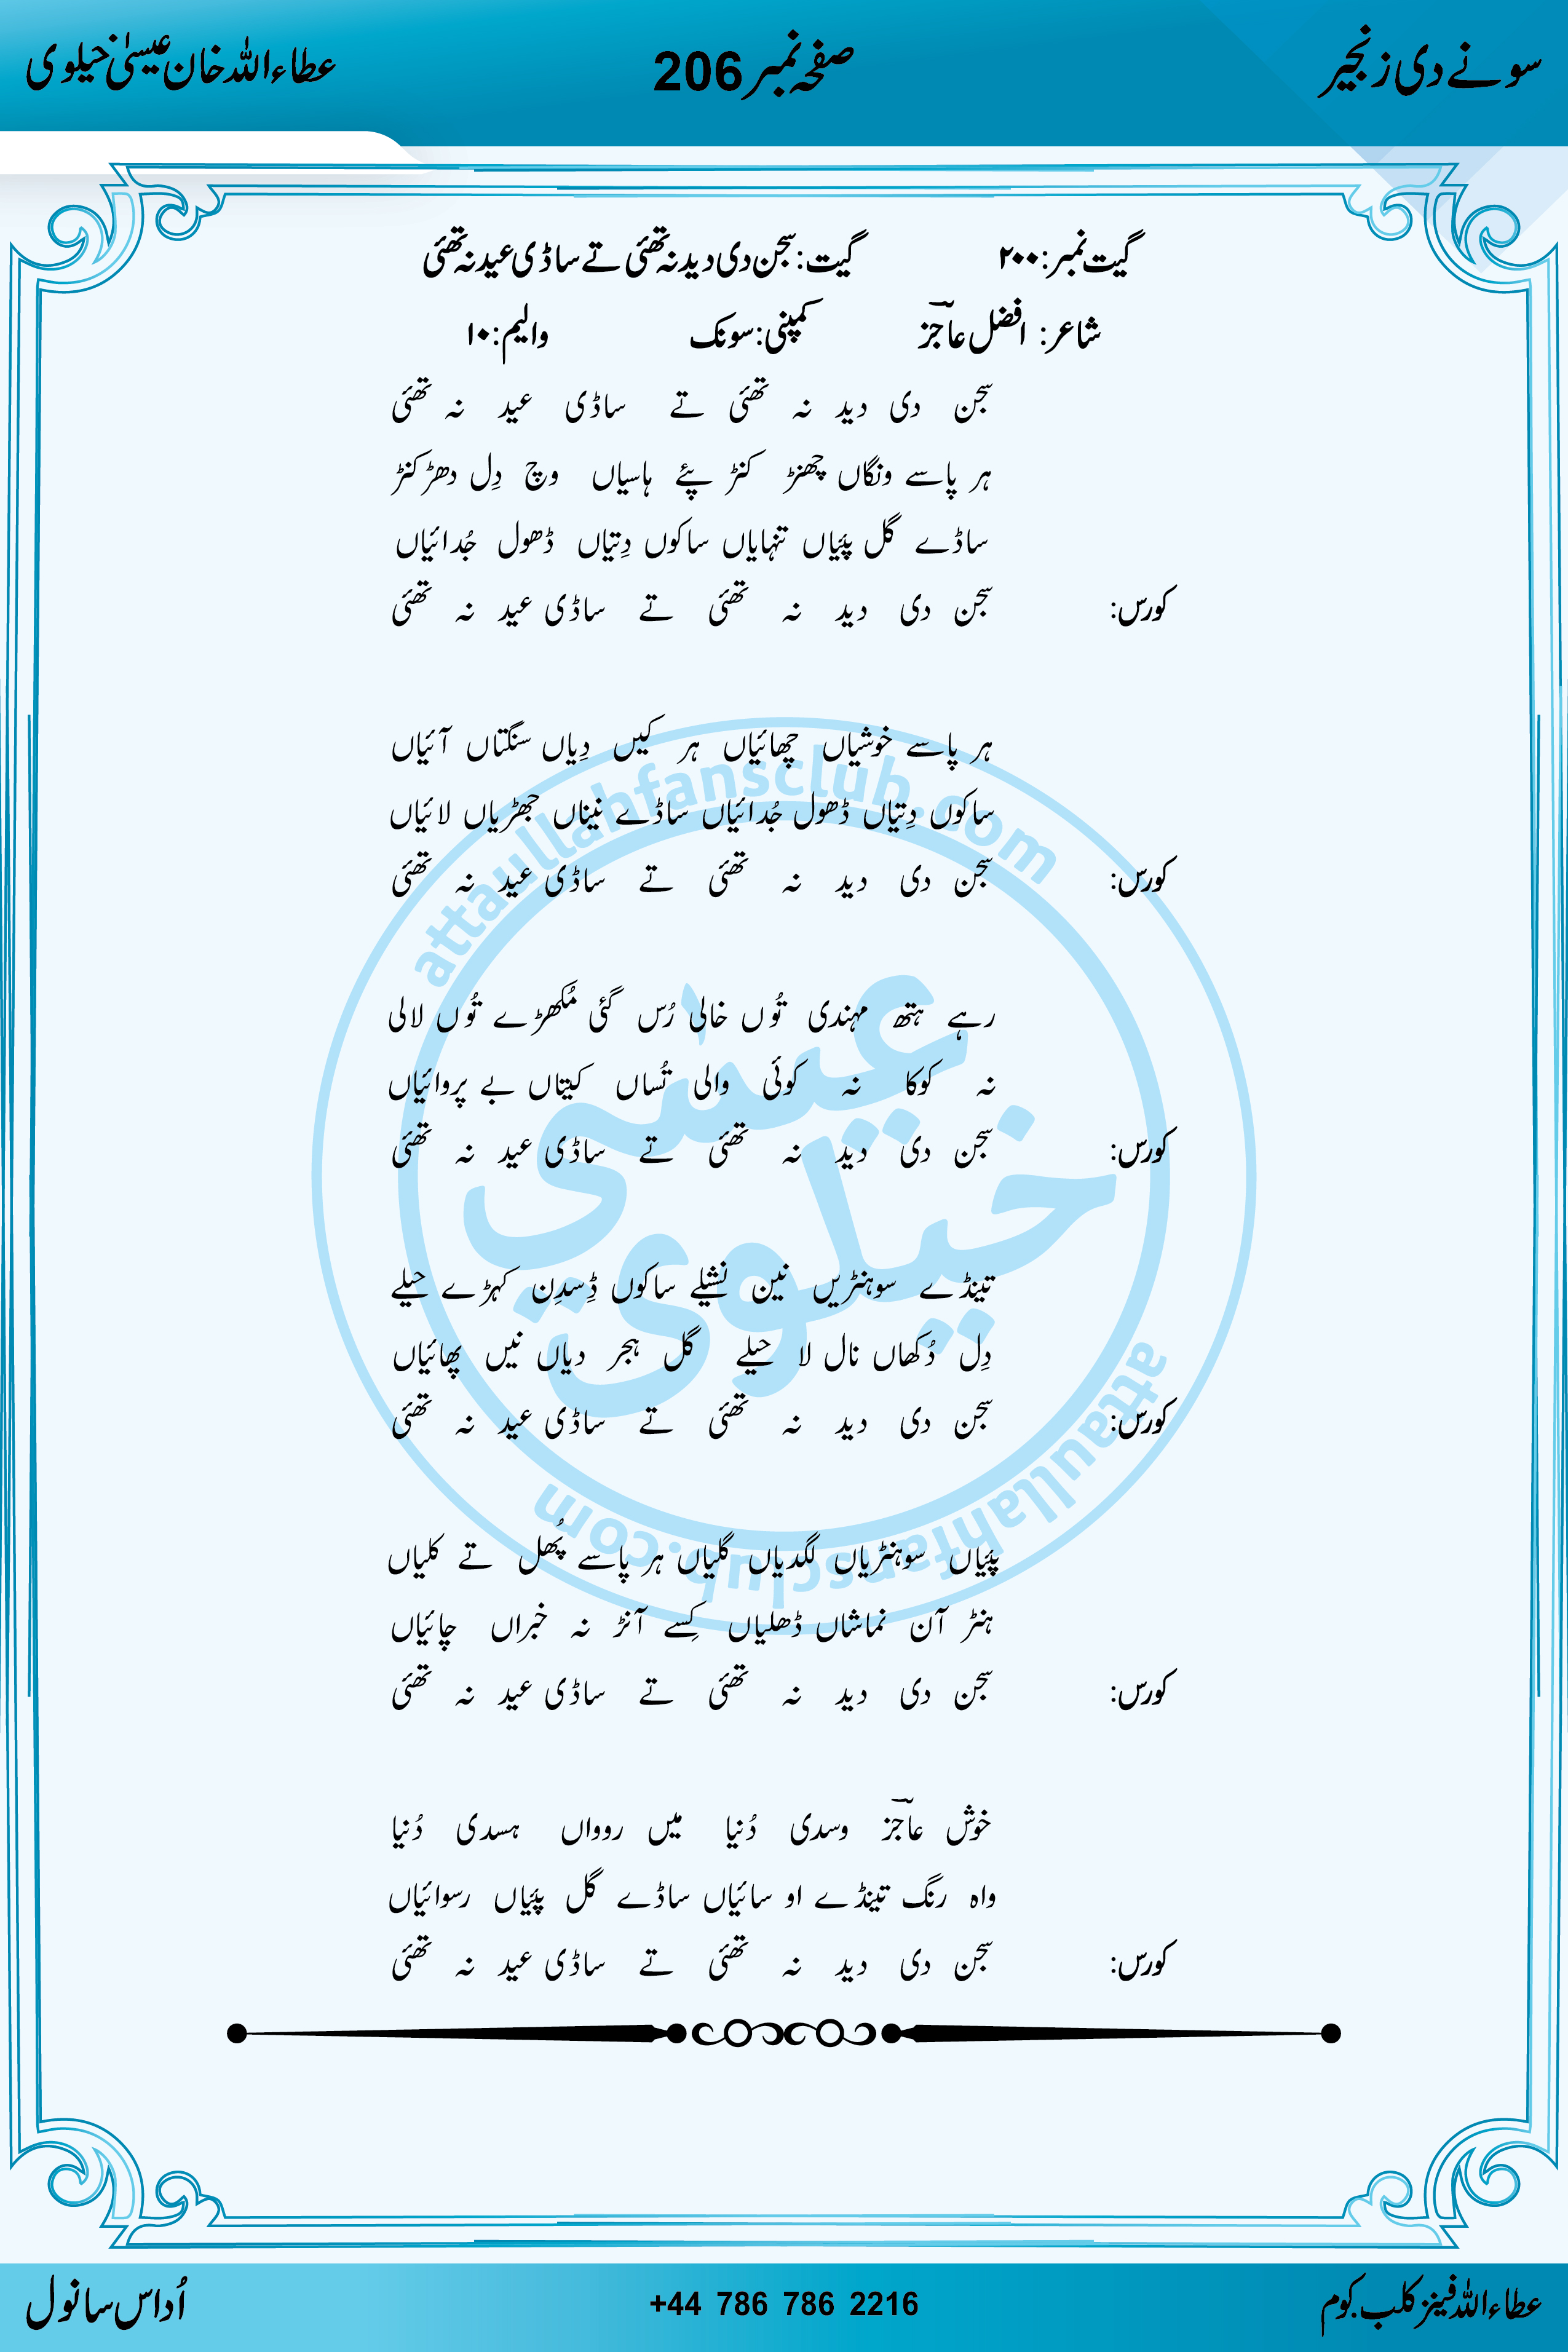 سونے دی زنجیر صفحہ نمبر 206 عطاءاللہ خان عیسیٰ خیلوی
گیت نمبر: ۲۰۰ گیت: سجن دی دید نہ تھئی تے ساڈی عید نہ تھئی
شاعر: افضل عاجزؔ کمپنی: سونک والیم: ۱۰
سجن دی دید نہ تھئی تے ساڈی عید نہ تھئی
ہر پاسے ونگاں چھنڑ کنڑ پئے ہاسیاں وچ دِل دھڑکنڑ
ساڈے گل پیئاں تنہایاں ساکوں دِتیاں ڈھول جُدائیاں
کورس: سجن دی دید نہ تھئی تے ساڈی عید نہ تھئی
ہر پاسے خوشیاں چھائیاں ہر کیں دِیاں سنگتاں آئیاں
ساکوں دِتیاں ڈھول جُدائیاں ساڈے نیناں جھڑیاں لائیاں
کورس: سجن دی دید نہ تھئی تے ساڈی عید نہ تھئی
رہے ہتھ مہندی تُوں خالی رُس گئی مُکھڑے تُوں لالی
نہ کوکا نہ کوئی والی تُساں کیتاں بے پروائیاں
کورس: سجن دی دید نہ تھئی تے ساڈی عید نہ تھئی
تینڈے سوہنڑیں نین نشیلے ساکوں ڈِسدِن کہڑے حیلے
دِل دُکھاں نال لا حیلے گل ہجر دیاں نیں پھائیاں
کورس: سجن دی دید نہ تھئی تے ساڈی عید نہ تھئی
پیئاں سوہنڑیاں لگدیاں گلیاں ہر پاسے پُھل تے کلیاں
ہنڑ آن نماشاں ڈھلیاں کِسے آنڑ نہ خبراں چائیاں
کورس: سجن دی دید نہ تھئی تے ساڈی عید نہ تھئی
خوش عاجزؔ وسدی دُنیا میں روواں ہسدی دُنیا
واہ رنگ تینڈے او سائیاں ساڈے گل پیئاں رسوائیاں
کورس: سجن دی دید نہ تھئی تے ساڈی عید نہ تھئی
attaullahfansclub.com
عیسٰی
خیلوی
attaullahfansclub.com
عطاءاللہ فینز کلب.کوم +44 786 786 2216 اُداس سانول